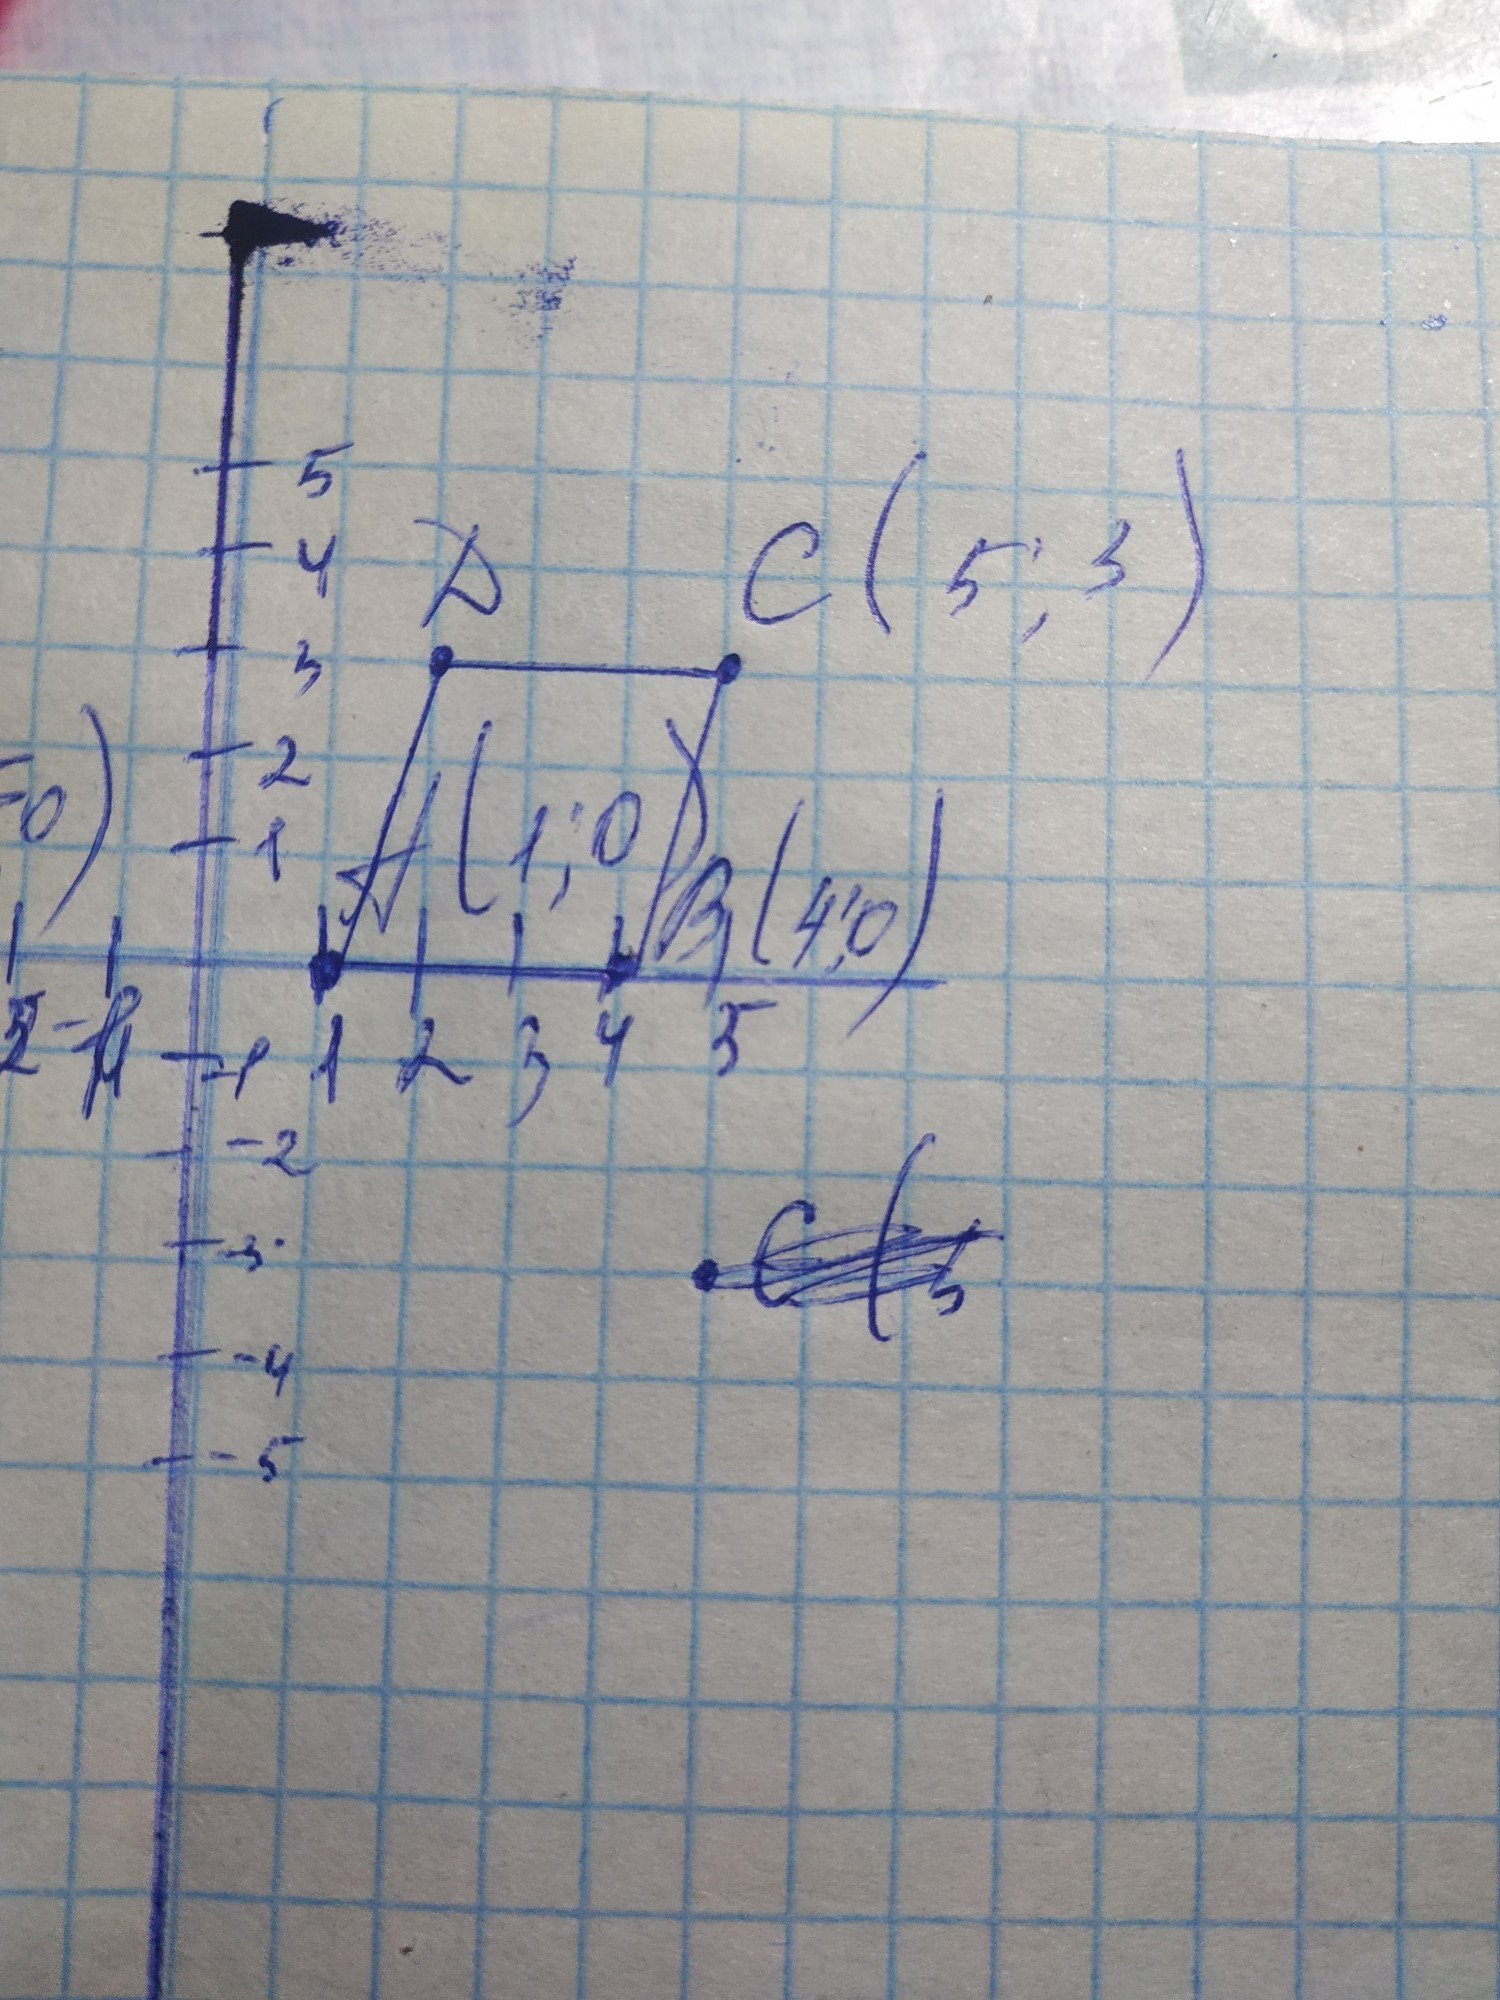 5
4
D C (5; 3)
3
2
A (1; 0)
-0)
1
B (4; 0)
1 2 3 4 5
-1
-2
C (5
-3
-4
-5